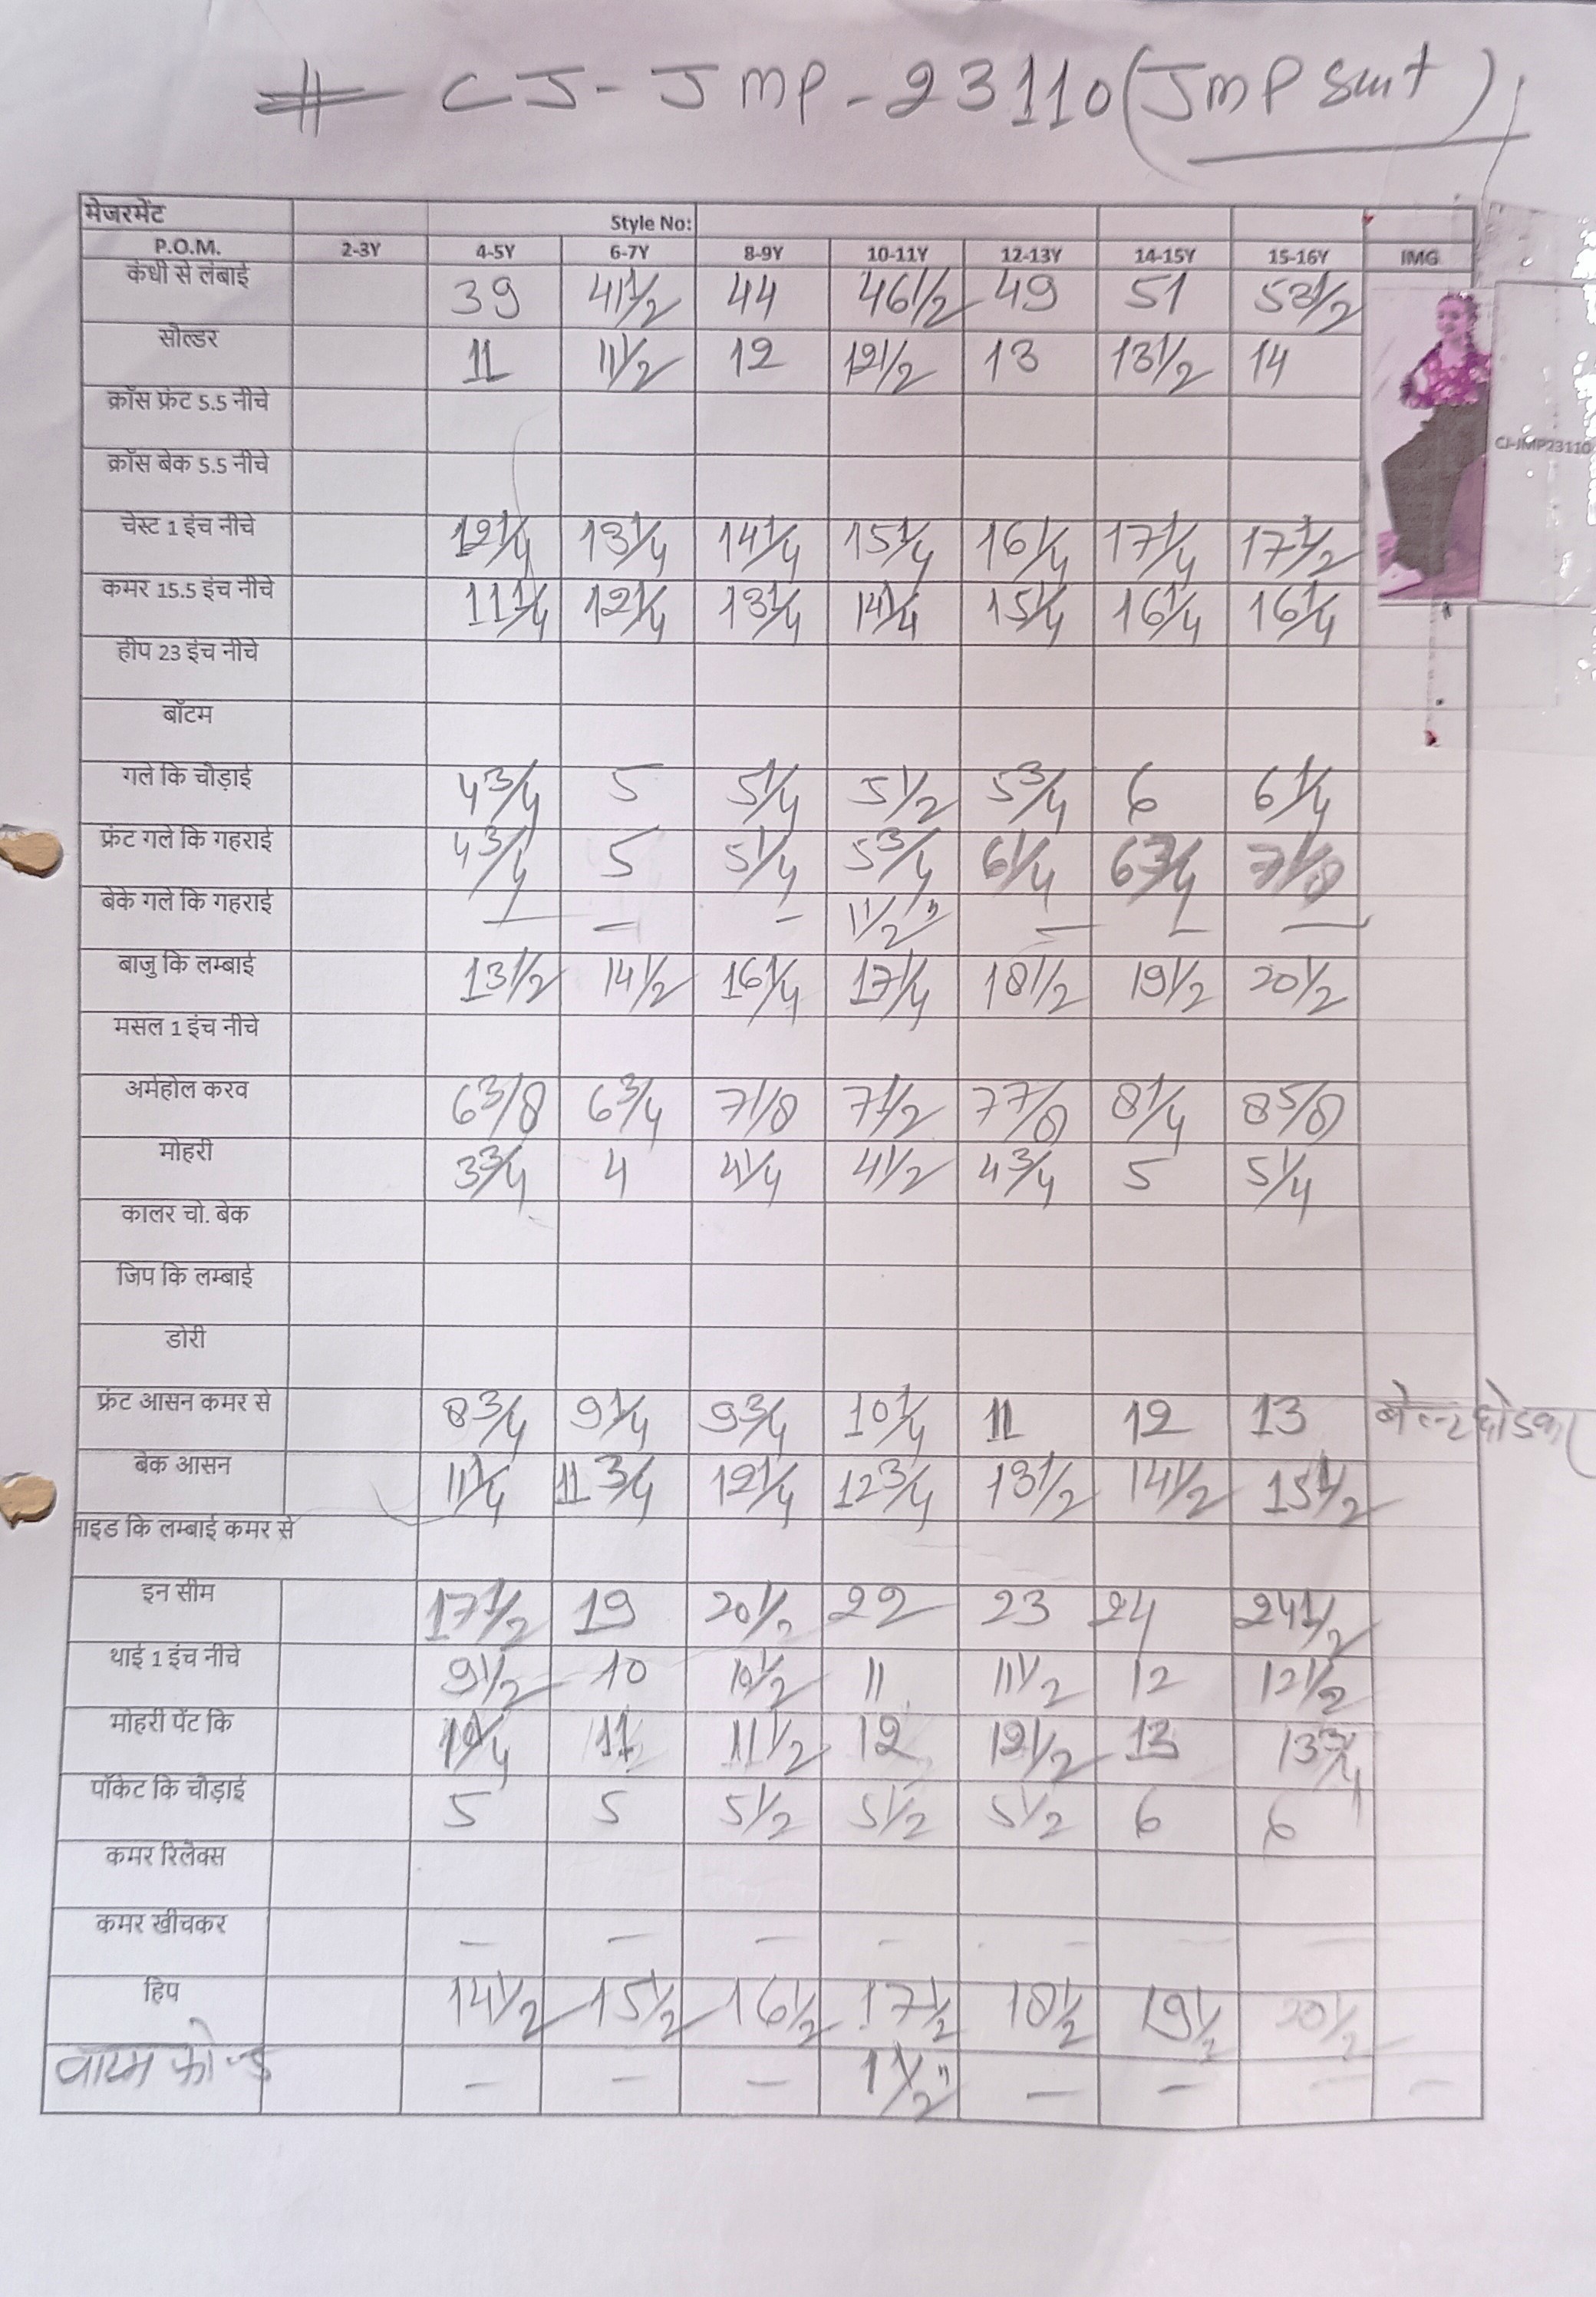 # CJ-JMP-23110 (JMP Suit)
मेजरमेंट Style No:
P.O.M. 2-3Y 4-5Y 6-7Y 8-9Y 10-11Y 12-13Y 14-15Y 15-16Y IMG
कंधी से लंबाई 39 41 1/2 44 46 1/2 49 51 53 1/2
सोल्डर 11 11 1/2 12 12 1/2 13 13 1/2 14
क्रॉस फ्रंट 5.5 नीचे
CJ-JMP23110
क्रॉस बेक 5.5 नीचे
चेस्ट 1 इंच नीचे 12 1/4 13 1/4 14 1/4 15 1/4 16 1/4 17 1/4 17 1/2
कमर 15.5 इंच नीचे 11 1/4 12 1/4 13 1/4 14 1/4 15 1/4 16 1/4 16 1/4
हीप 23 इंच नीचे
बॉटम
गले कि चौड़ाई 4 3/4 5 5 1/4 5 1/2 5 3/4 6 6 1/4
फ्रंट गले कि गहराई 4 3/4 5 5 1/4 5 3/4 6 1/4 6 3/4 7 1/8
बेके गले कि गहराई - - - 1 1/2" - - -
बाजु कि लम्बाई 13 1/2 14 1/2 16 1/4 17 1/4 18 1/2 19 1/2 20 1/2
मसल 1 इंच नीचे
अर्महोल करव 6 3/8 6 3/4 7 1/8 7 1/2 7 7/8 8 1/4 8 5/8
मोहरी 3 3/4 4 4 1/4 4 1/2 4 3/4 5 5 1/4
कालर चो. बेक
जिप कि लम्बाई
डोरी
फ्रंट आसन कमर से 8 3/4 9 1/4 9 3/4 10 1/4 11 12 13 बेल्ट छोडकर
बेक आसन 11 1/4 11 3/4 12 1/4 12 3/4 13 1/2 14 1/2 15 1/2
साइड कि लम्बाई कमर से
इन सीम 17 1/2 19 20 1/2 22 23 24 24 1/2
थाई 1 इंच नीचे 9 1/2 10 10 1/2 11 11 1/2 12 12 1/2
मोहरी पेंट कि 11 11 1/2 12 12 1/2 13 13 3/4
पॉकेट कि चौड़ाई 5 5 5 1/2 5 1/2 5 1/2 6 6
कमर रिलेक्स
कमर खीचकर - - - - - - -
हिप 14 1/2 15 1/2 16 1/2 17 1/2 18 1/2 19 1/2 20 1/2
फोल्ड - - - 1 1/2" - - - -